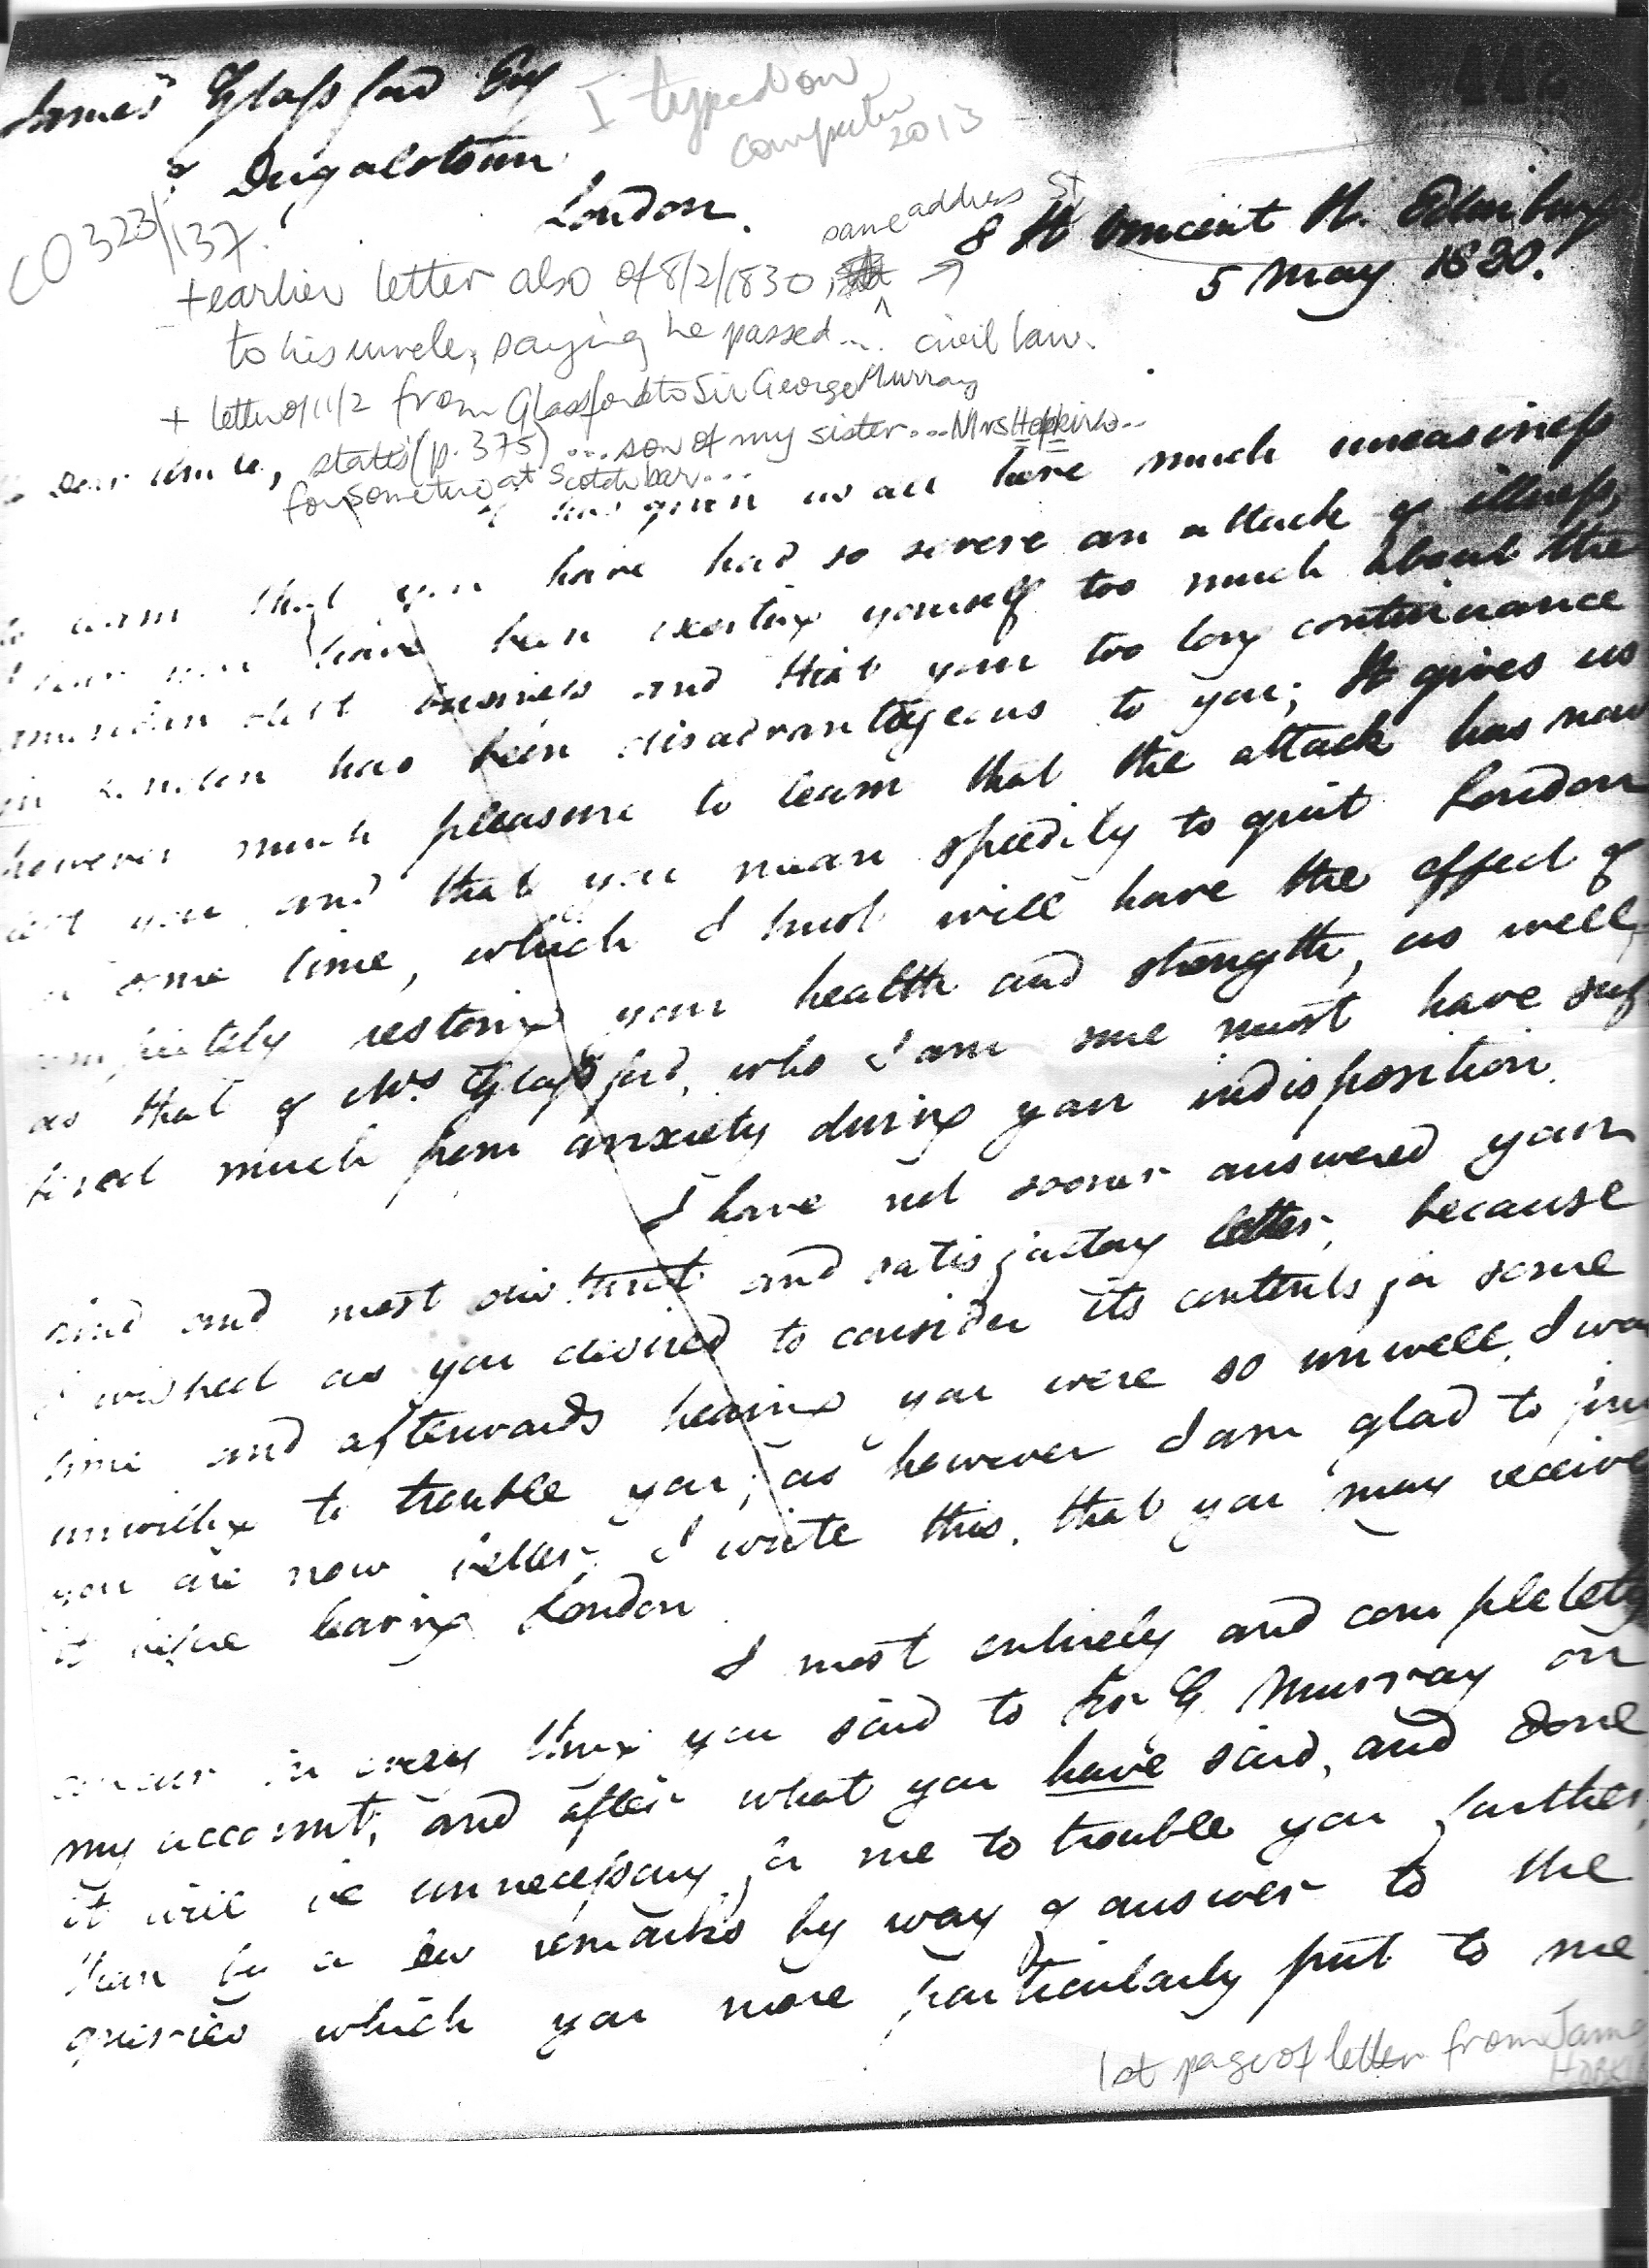 James Glassford Esq
of Dugalstoun
London.
I typed on
computer
2013
CO 323/137.
same address St
8 St Vincent St. Edinburgh
5 May 1830.
+ earlier letter also of 8/2/1830, →
to his uncle, saying he passed... civil law.
+ letter of 11/2 from Glassford to Sir George Murray
states (p. 375) ... son of my sister... Mrs Hopkirk...
for sometime at Scotch bar...
Dear Uncle,
It has given us all here much uneasiness
to learn that you have had so severe an attack of illness,
I fear you have been exerting yourself too much about the
business and that your too long continuance
in London has been disadvantageous to you; It gives us
however much pleasure to learn that the attack has now
left you and that you mean speedily to quit London
some time, which I trust will have the effect of
completely restoring your health and strength, as well
as that of Mrs Glassford, who I am sure must have suf
fered much from anxiety during your indisposition.
I have not sooner answered your
kind and most distinct and satisfactory letter, because
I wished as you desired to consider its contents for some
time and afterwards hearing you were so unwell, I was
unwilling to trouble you; as however I am glad to find
you are now better, I write this, that you may receive
it before leaving London.
I most entirely and completely
concur in every thing you said to Sir G. Murray on
my account, and after what you have said, and done
it will be unnecessary for me to trouble you further,
than by a few remarks by way of answer to the
queries which you more particularly put to me.
1st page of letter from James